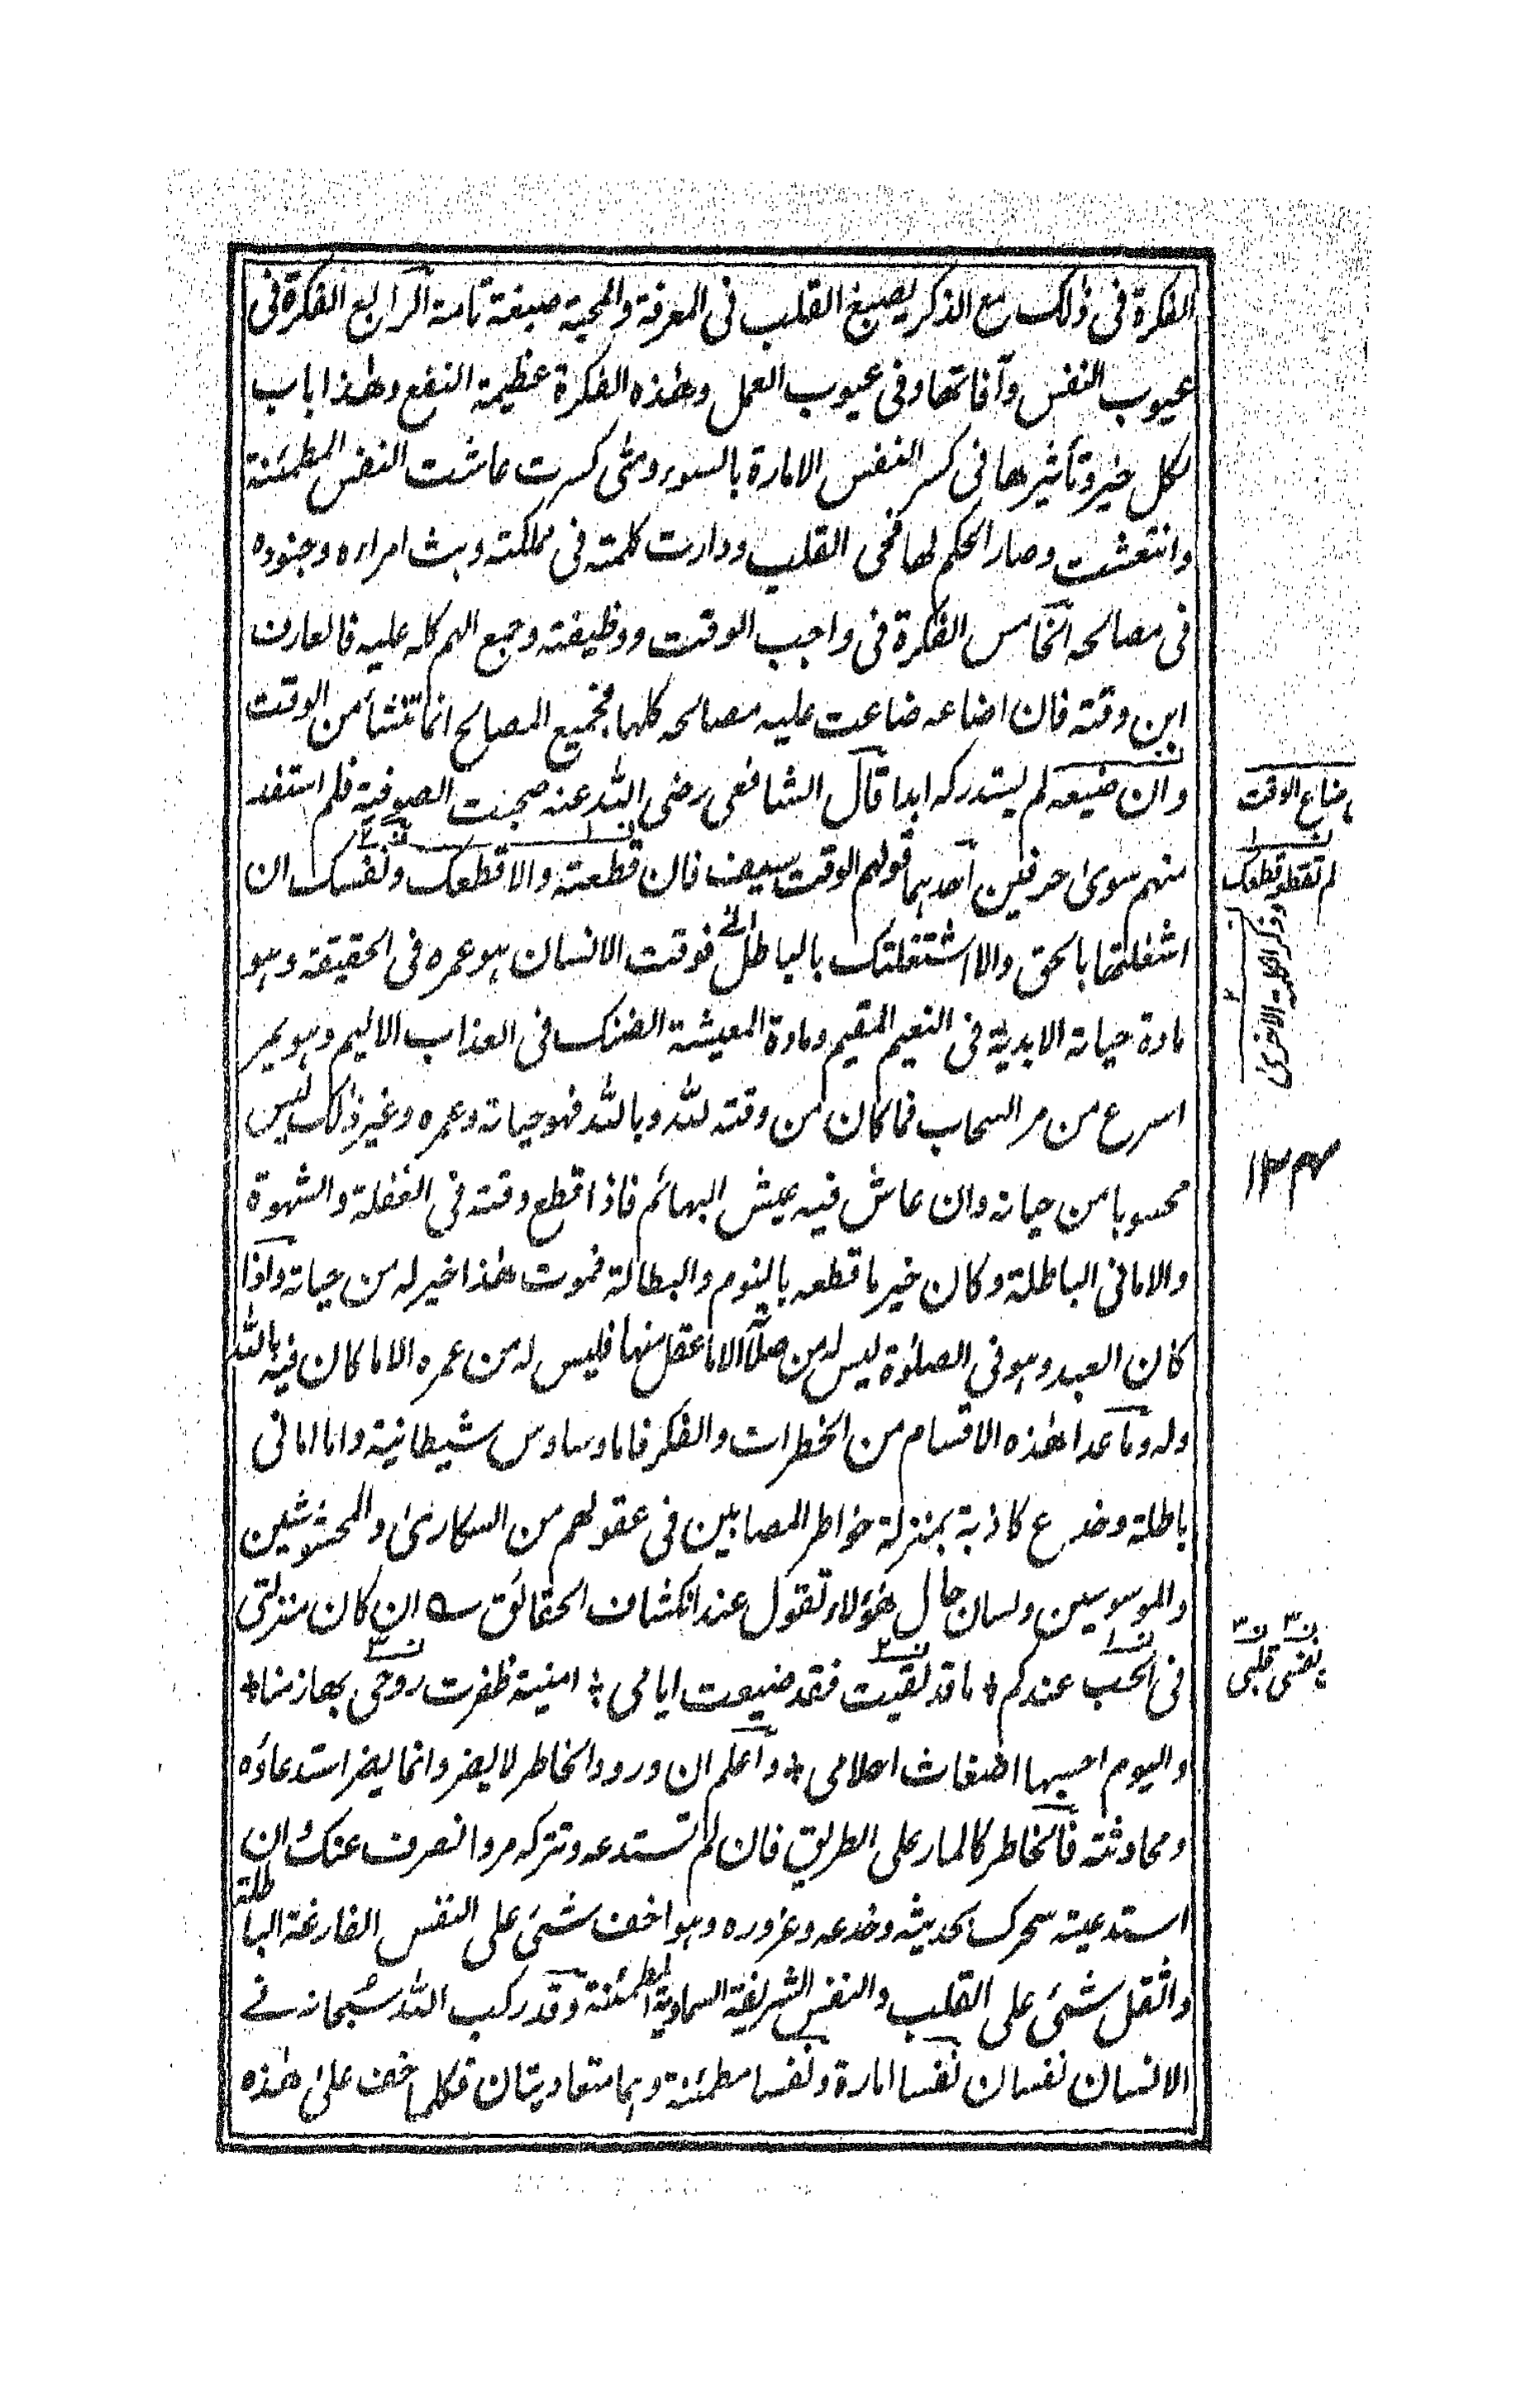 الفكرة فى ذلك مع الذكر يصبغ القلب فى المعرفة والمحبة صبغة تامة الرابع الفكرة فى
عيوب النفس وآفاتها وفى عيوب العمل وهذه الفكرة عظيمة النفع وهذا باب
لكل خير وتأثيرها فى كسر النفس الامارة بالسوء ومتى كسرت عاشت النفس المطمئنة
وانتعشت وصار الحكم لها فحى القلب ودارت كلمته فى مملكته وبث امراءه وجنوده
فى مصالحه الخامس الفكرة فى واجب الوقت ووظيفته وجمع الهم كله عليه فالعارف
ابن وقته فان اضاعه ضاعت عليه مصالحه كلها فجميع المصالح انما تنشأ من الوقت
وان ضيعه لم يستدركه ابدا قال الشافعى رضى الله عنه صحبت الصوفية فلم استفد
منهم سوى حرفين احدهما قولهم الوقت سيف فان قطعته والا قطعك ونفسك ان
اشغلتها بالحق والا اشتغلتك بالباطل الخ فوقت الانسان هو عمره فى الحقيقة وهو
مادة حياته الابدية فى النعيم المقيم ومادة المعيشة الضنك فى العذاب الاليم وهو يمر
اسرع من مر السحاب فما كان من وقته لله وبالله فهو حياته وعمره وغير ذلك ليس
محسوبا من حياته وان عاش فيه عيش البهائم فاذا قطع وقته فى الغفلة والشهوة
والامانى الباطلة وكان خير ما قطعه بالنوم والبطالة فموت هذا خير له من حياته واذا
كان العبد وهو فى الصلوة ليس له من صلاته الا ما عقل منها فليس له من عمره الا ما كان فيه بالله
وله وما عدا هذه الاقسام من الخطرات والفكر فاما وساوس شيطانية واما امانى
باطلة وخدع كاذبة بمنزلة خواطر المصابين فى عقولهم من السكارى والمحشوشين
والموسوسين ولسان حال هؤلاء تقول عند انكشاف الحقائق ؎ ان كان منزلتى
فى الحب عندكم + ما قد لقيت فقد ضيعت ايامى + امنية ظفرت روحى بها زمنا +
واليوم احسبها اضغاث احلامى + واعلم ان ورود الخاطر لا يضر وانما يضر استدعاؤه
ومحادثته فالخاطر كالمار على الطريق فان لم تستدعه وتتركه مر وانصرف عنك وان
استدعيته سحرك بحديثه وخدعه وغروره وهو اخف شئ على النفس الفارغة الباطلة
واثقل شئ على القلب والنفس الشريفة السماوية المطمئنة وقد ركب الله سبحانه فے
الانسان نفسان نفسا امارة ونفسا مطمئنة وهما متعاديتان فكلما خف على هذه
ضاع الوقت
لم تقطعه قطعك
وذكر الكلمة الاخرى
١٢
بنفسى قلبى